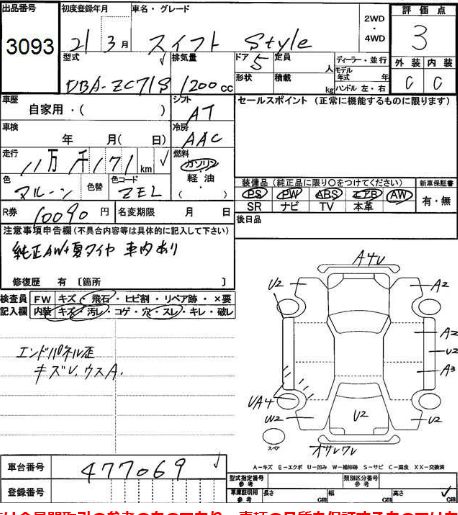 出品番号
3093
初度登録年月
21 3月
車名・グレード
スイフト Style
2WD
・
4WD
評価点
3
型式
DBA-ZC71S
排気量
1200 cc
ドア
5
形状
定員
人
積載
kg
ディーラー・並行
モデル
年式 年
ハンドル 左・右
外装 内装
C C
車歴
自家用・( )
シフト
AT
車検
年 月(日)
冷房
AAC
走行
11万 千 171 km
燃料
ガソリン
軽油
( )
色
マルーン
色替
色コード
ZEL
R券
10090 円
名変期限 月 日
セールスポイント (正常に機能するものに限ります)
装備品 (純正品に限り○をつけてください)
PS PW ABS エアB AW
SR ナビ TV 本革
新車保証書
有・無
後日品
注意事項申告欄(不具合内容等は具体的に記入して下さい)
純正AW+夏タイヤ 車内あり
修復歴 有 〔箇所 〕
検査員
記入欄
FW キズ・飛石・ヒビ割・リペア跡・×要
内装 キズ・汚レ・コゲ・穴・スレ・キレ・破レ
エンドパネル
キズU、ウスA.
A4U
U2
A2
A2
U2
A3
UA4
W2
U2
U2
スペヤ
A-キズ E-エクボ U-凹み W-補修跡 S-サビ C-腐食 XX-交換済
車台番号
477069
登録番号
型式指定番号
参考
類別区分番号
参考
車庫証明用
参考
長さ
cm
幅
cm
高さ
cm